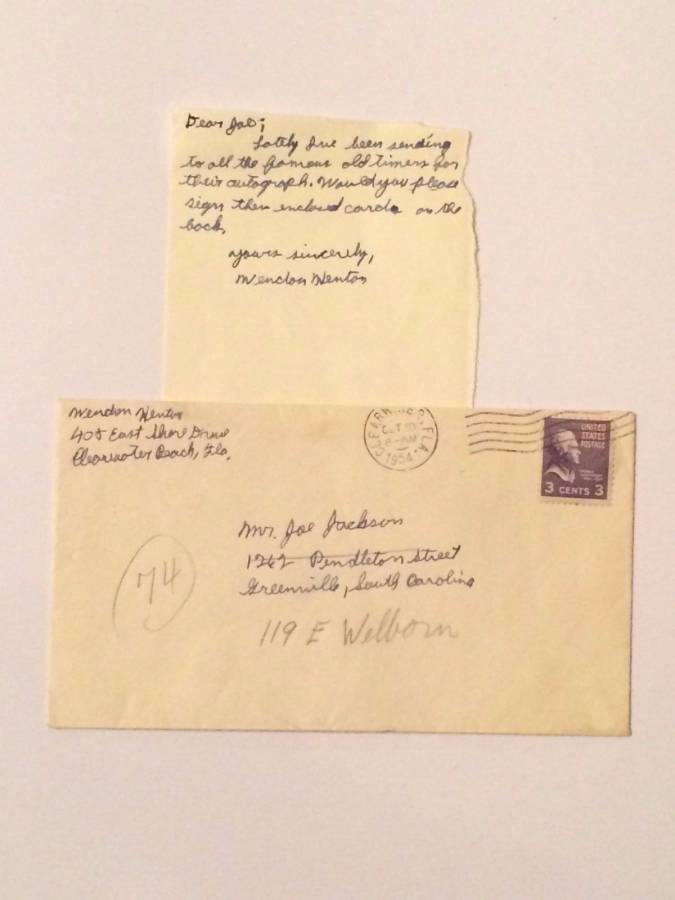 Dear Joe;
Lately I've been sending
to all the famous oldtimers for
their autograph. Would you please
sign then enclosed cards on the
back.
Yours sincerely,
Wendon
Wendon
405 East Shore Drive
Clearwater Beach, Fla.
CLEARWATER, FLA.
OCT 10
1954
UNITED
STATES
POSTAGE
3 CENTS 3
Mr. Joe Jackson
1262 Pendleton Street
Greenville, South Carolina
119 E Welborn
74